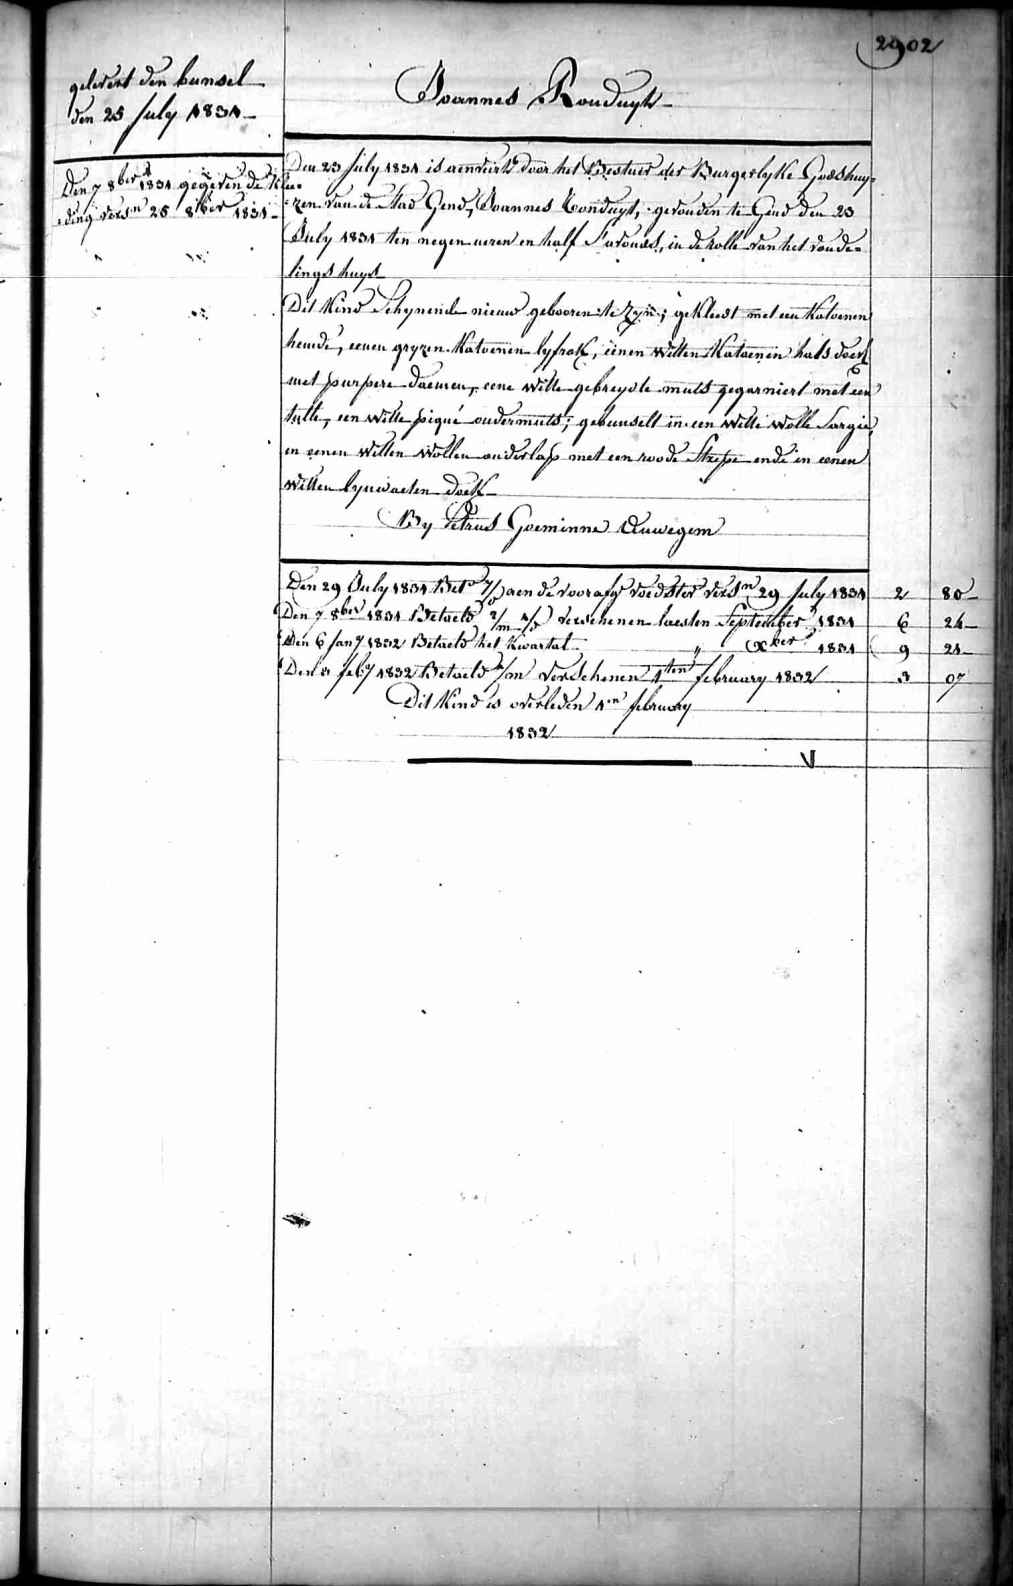 2902
gelevert den bunsel
den 25 July 1831
Joannes Ronduyt
Den 7 8ber 1831 gegeven de Klee=
=ding versn 25 8ber 1831
Den 23 July 1831 is aenveirt door het Bestuer der Burgerlyke Godshuy=
=zen van de Stad Gend, Joannes Ronduyt, gevonden te Gend den 23
July 1831 ten negen uren en half S'avonds, in de rolle van het vonde=
lings huys
Dit Kind Schynende nieuw gebooren te Zyn; gekleedt met een Katoenen
hemde, eenen gryzen Katoenen lyfrok, eenen Witten Katoenen hals doek
met purpere blaemen, eene Witte gebreyde muts gegarniert met een
tulle, een Witte piqué ondermuts; gebunselt in een Witte Wolle Sargie,
en eenen Witten Wollen onderlap met een roode Strepe ende in eenen
Witten lynwaeten doek
By Petrus Goeminne Auwegem
Den 29 July 1831 Bet aen de voorafg voedster versn 29 July 1831 2 80
Den 7 8ber 1831 Betaeld 2/m verschenen laesten September 1831 6 24
Den 6 Jany 1832 Betaeld het Kwartal " Xber 1831 9 21
Den 8 feby 1832 Betaeld 1/m verschenen 1ten february 1832 3 07
Dit Kind is overleden 1en february
1832
V